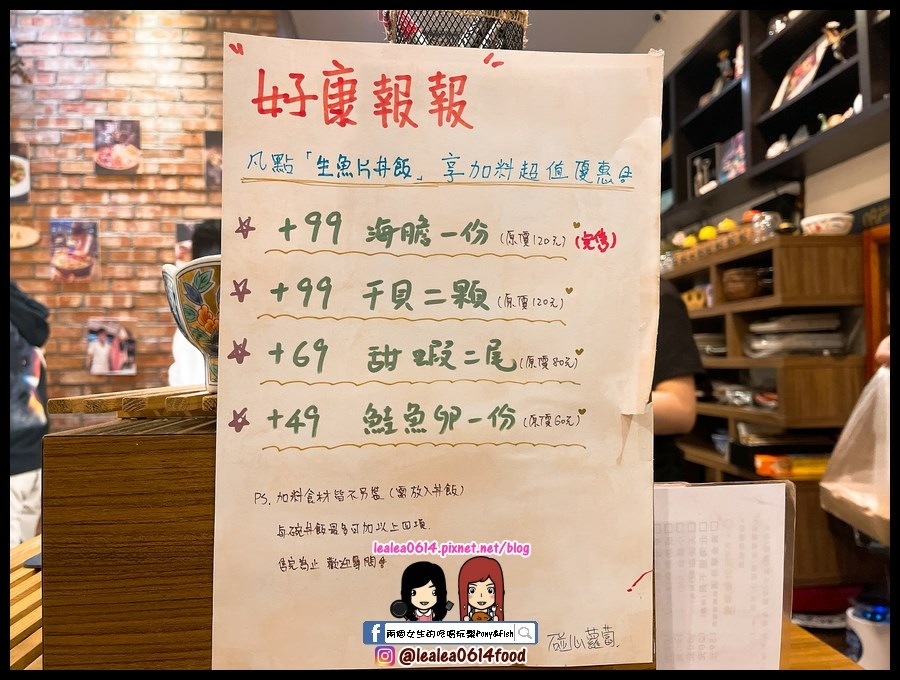 好康報報
凡點「生魚片丼飯」享加料超值優惠
+99 海膽一份 (原價120元) (完售)
+99 干貝二顆 (原價120元)
+69 甜蝦二尾 (原價80元)
+49 鮭魚卵一份 (原價60元)
PS. 加料食材皆不另裝 (需放入丼飯)
每碗丼飯最多可加以上四項.
售完為止 歡迎尋問
lealea0614.pixnet.net/blog
兩個女生的吃喝玩樂Pony&Fish
@lealea0614food
碰心蘿蔔.